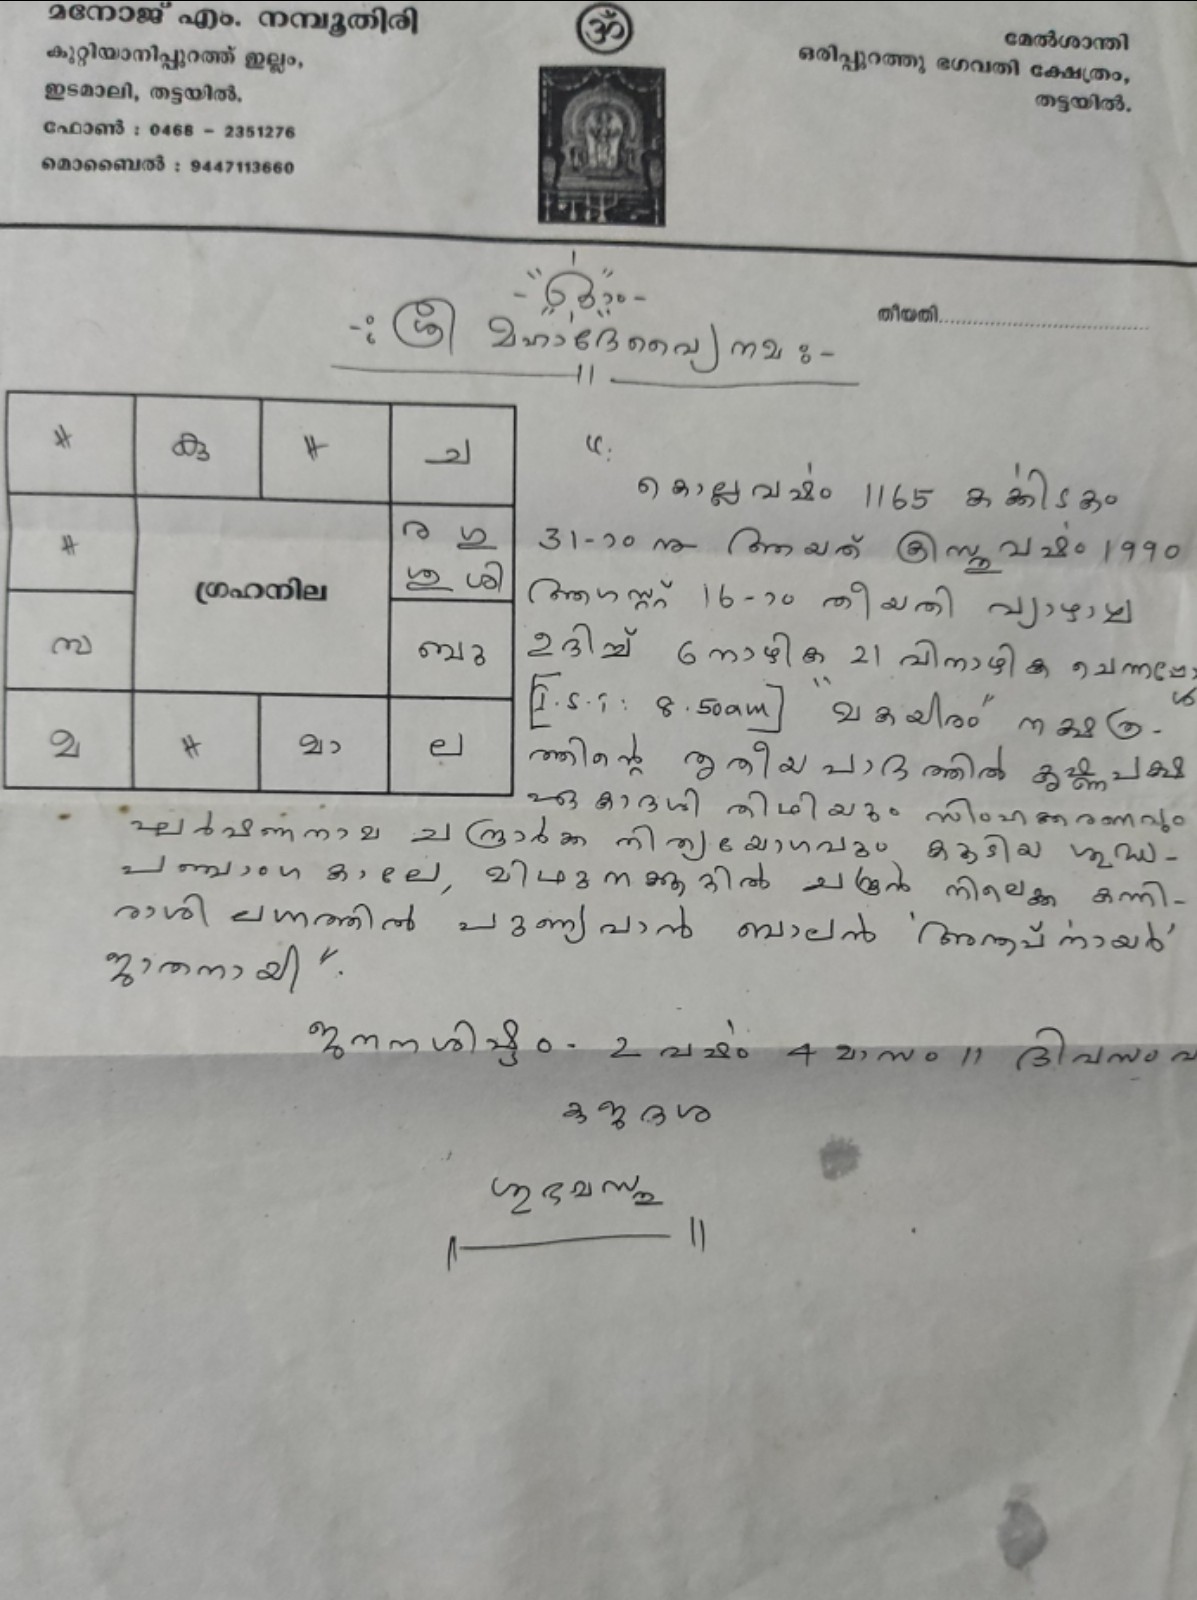 മനോജ് എം. നമ്പൂതിരി
കുറ്റിയാനിപ്പുറത്ത് ഇല്ലം,
ഇടമാലി, തട്ടയിൽ.
ഫോൺ : 0468 - 2351276
മൊബൈൽ : 9447113660
ॐ
മേൽശാന്തി
ഒരിപ്പുറത്തു ഭഗവതി ക്ഷേത്രം,
തട്ടയിൽ.
തീയതി
ശ്രീ മഹാദേവ്യൈ നമഃ
# കു # ച
# ര ഗു
ശു ശി
ഗ്രഹനില
സ ബു
മ # മാ ല
കൊല്ലവർഷം 1165 കർക്കിടകം
31-ാം നു ആയത് ക്രിസ്തുവർഷം 1990
ആഗസ്റ്റ് 16-ാം തീയതി വ്യാഴാഴ്ച
ഉദിച്ച് 6 നാഴിക 21 വിനാഴിക ചെന്നപ്പോൾ
[I.S.T: 8.50am] "മകയിരം" നക്ഷത്ര-
ത്തിന്റെ തൃതീയ പാദത്തിൽ കൃഷ്ണപക്ഷ
ഏകാദശി തിഥിയും സിംഹകരണവും
ഹർഷണനാമ ചന്ദ്രാർക്ക നിത്യയോഗവും കൂടിയ ശുദ്ധ-
പഞ്ചാംഗ കാലേ, മിഥുനക്കൂറിൽ ചന്ദ്രൻ നിലെക്ക കന്നി-
രാശി ലഗ്നത്തിൽ പുണ്യവാൻ ബാലൻ 'അനൂപ് നായർ'
ജാതനായി".
ജനനശിഷ്ടം - 2 വർഷം 4 മാസം 11 ദിവസം
കുജദശ
ശുഭമസ്തു